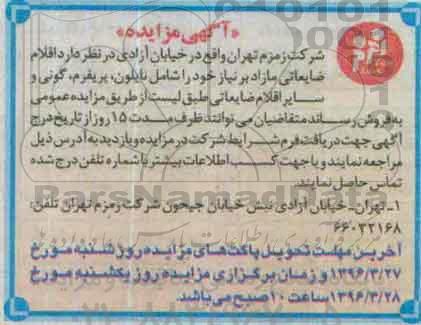 «آگهی مزایده»
شرکت زمزم تهران واقع در خیابان آزادی در نظر دارد اقلام
ضایعاتی مازاد بر نیاز خود را شامل نایلون، پریفرم، گونی و
سایر اقلام ضایعاتی طبق لیست از طریق مزایده عمومی
به فروش رساند متقاضیان می‌توانند ظرف مدت ۱۵ روز از تاریخ درج
آگهی جهت دریافت فرم شرایط شرکت در مزایده و بازدید به آدرس ذیل
مراجعه نمایند و یا جهت کسب اطلاعات بیشتر با شماره تلفن درج شده
تماس حاصل نمایند.
۱ـ تهران- خیابان آزادی نبش خیابان جیحون شرکت زمزم تهران تلفن:
۶۶۰۳۲۱۶۸
آخرین مهلت تحویل پاکت‌های مزایده روز شنبه مورخ
۱۳۹۶/۳/۲۷ و زمان برگزاری مزایده روز یکشنبه مورخ
۱۳۹۶/۳/۲۸ ساعت ۱۰ صبح می‌باشد.
ParsNamadData